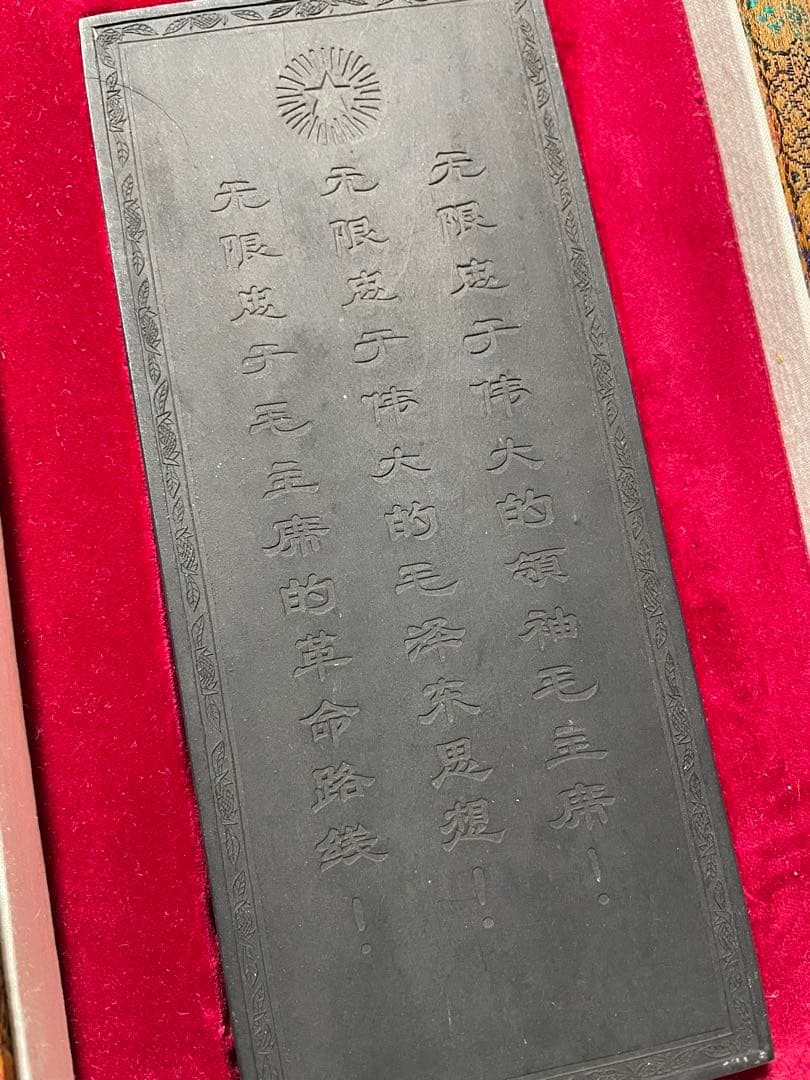 无限忠于伟大的领袖毛主席！
无限忠于伟大的毛泽东思想！
无限忠于毛主席的革命路线！